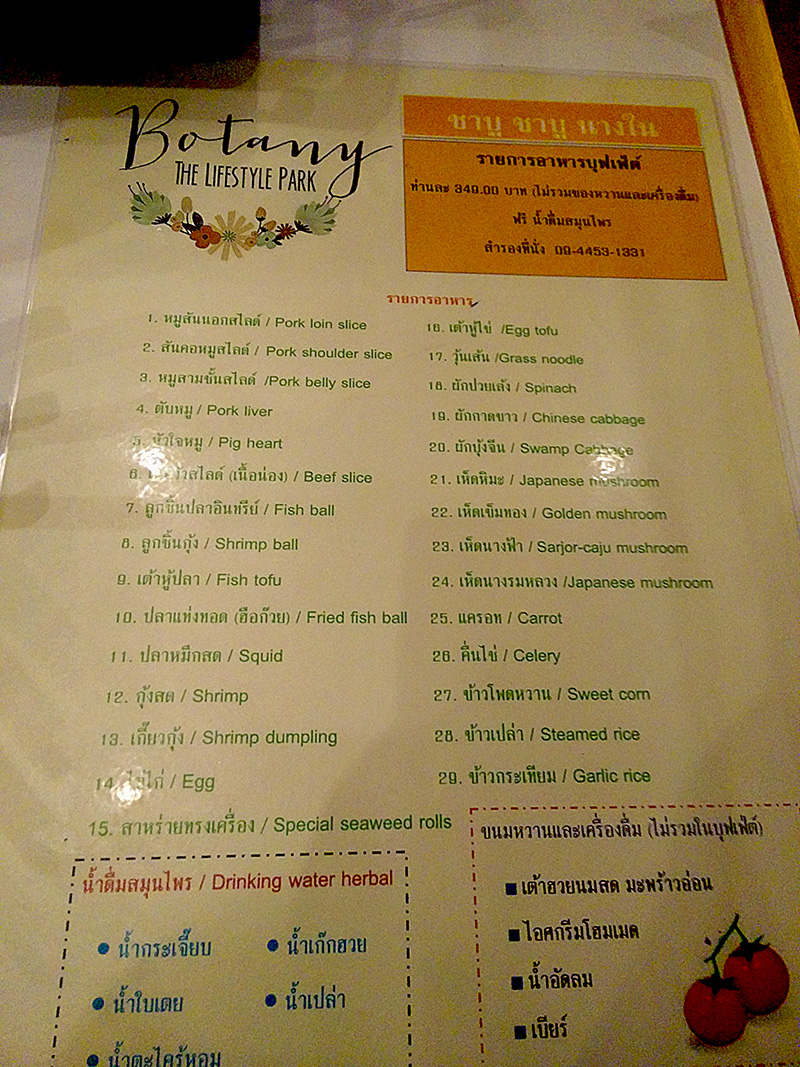 Botany
THE LIFESTYLE PARK
ชาบู ชาบู นางใน
รายการอาหารบุฟเฟ่ต์
ท่านละ 349.00 บาท (ไม่รวมของหวานและเครื่องดื่ม)
ฟรี น้ำดื่มสมุนไพร
สำรองที่นั่ง 09-4453-1331
รายการอาหาร
1. หมูสันนอกสไลด์ / Pork loin slice
2. สันคอหมูสไลด์ / Pork shoulder slice
3. หมูสามชั้นสไลด์ /Pork belly slice
4. ตับหมู / Pork liver
5. หัวใจหมู / Pig heart
6. เนื้อวัวสไลด์ (เนื้อน่อง) / Beef slice
7. ลูกชิ้นปลาอินทรีย์ / Fish ball
8. ลูกชิ้นกุ้ง / Shrimp ball
9. เต้าหู้ปลา / Fish tofu
10. ปลาแท่งทอด (ฮือก๊วย) / Fried fish ball
11. ปลาหมึกสด / Squid
12. กุ้งสด / Shrimp
13. เกี๊ยวกุ้ง / Shrimp dumpling
14. ไข่ไก่ / Egg
15. สาหร่ายทรงเครื่อง / Special seaweed rolls
16. เต้าหู้ไข่ /Egg tofu
17. วุ้นเส้น /Grass noodle
18. ผักปวยเล้ง / Spinach
19. ผักกาดขาว / Chinese cabbage
20. ผักบุ้งจีน / Swamp Cabbage
21. เห็ดหิมะ / Japanese mushroom
22. เห็ดเข็มทอง / Golden mushroom
23. เห็ดนางฟ้า / Sarjor-caju mushroom
24. เห็ดนางรมหลวง /Japanese mushroom
25. แครอท / Carrot
26. คื่นไช่ / Celery
27. ข้าวโพดหวาน / Sweet corn
28. ข้าวเปล่า / Steamed rice
29. ข้าวกระเทียม / Garlic rice
น้ำดื่มสมุนไพร / Drinking water herbal
น้ำกระเจี๊ยบ
น้ำเก๊กฮวย
น้ำใบเตย
น้ำเปล่า
น้ำตะไคร้หอม
ขนมหวานและเครื่องดื่ม (ไม่รวมในบุฟเฟ่ต์)
เต้าฮวยนมสด มะพร้าวอ่อน
ไอศกรีมโฮมเมด
น้ำอัดลม
เบียร์